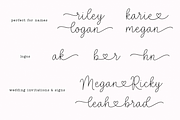 perfect for names
riley karie
logan megan
logos
ak b♥r hn
Megan♥Ricky
wedding invitations & signs
leah♥brad